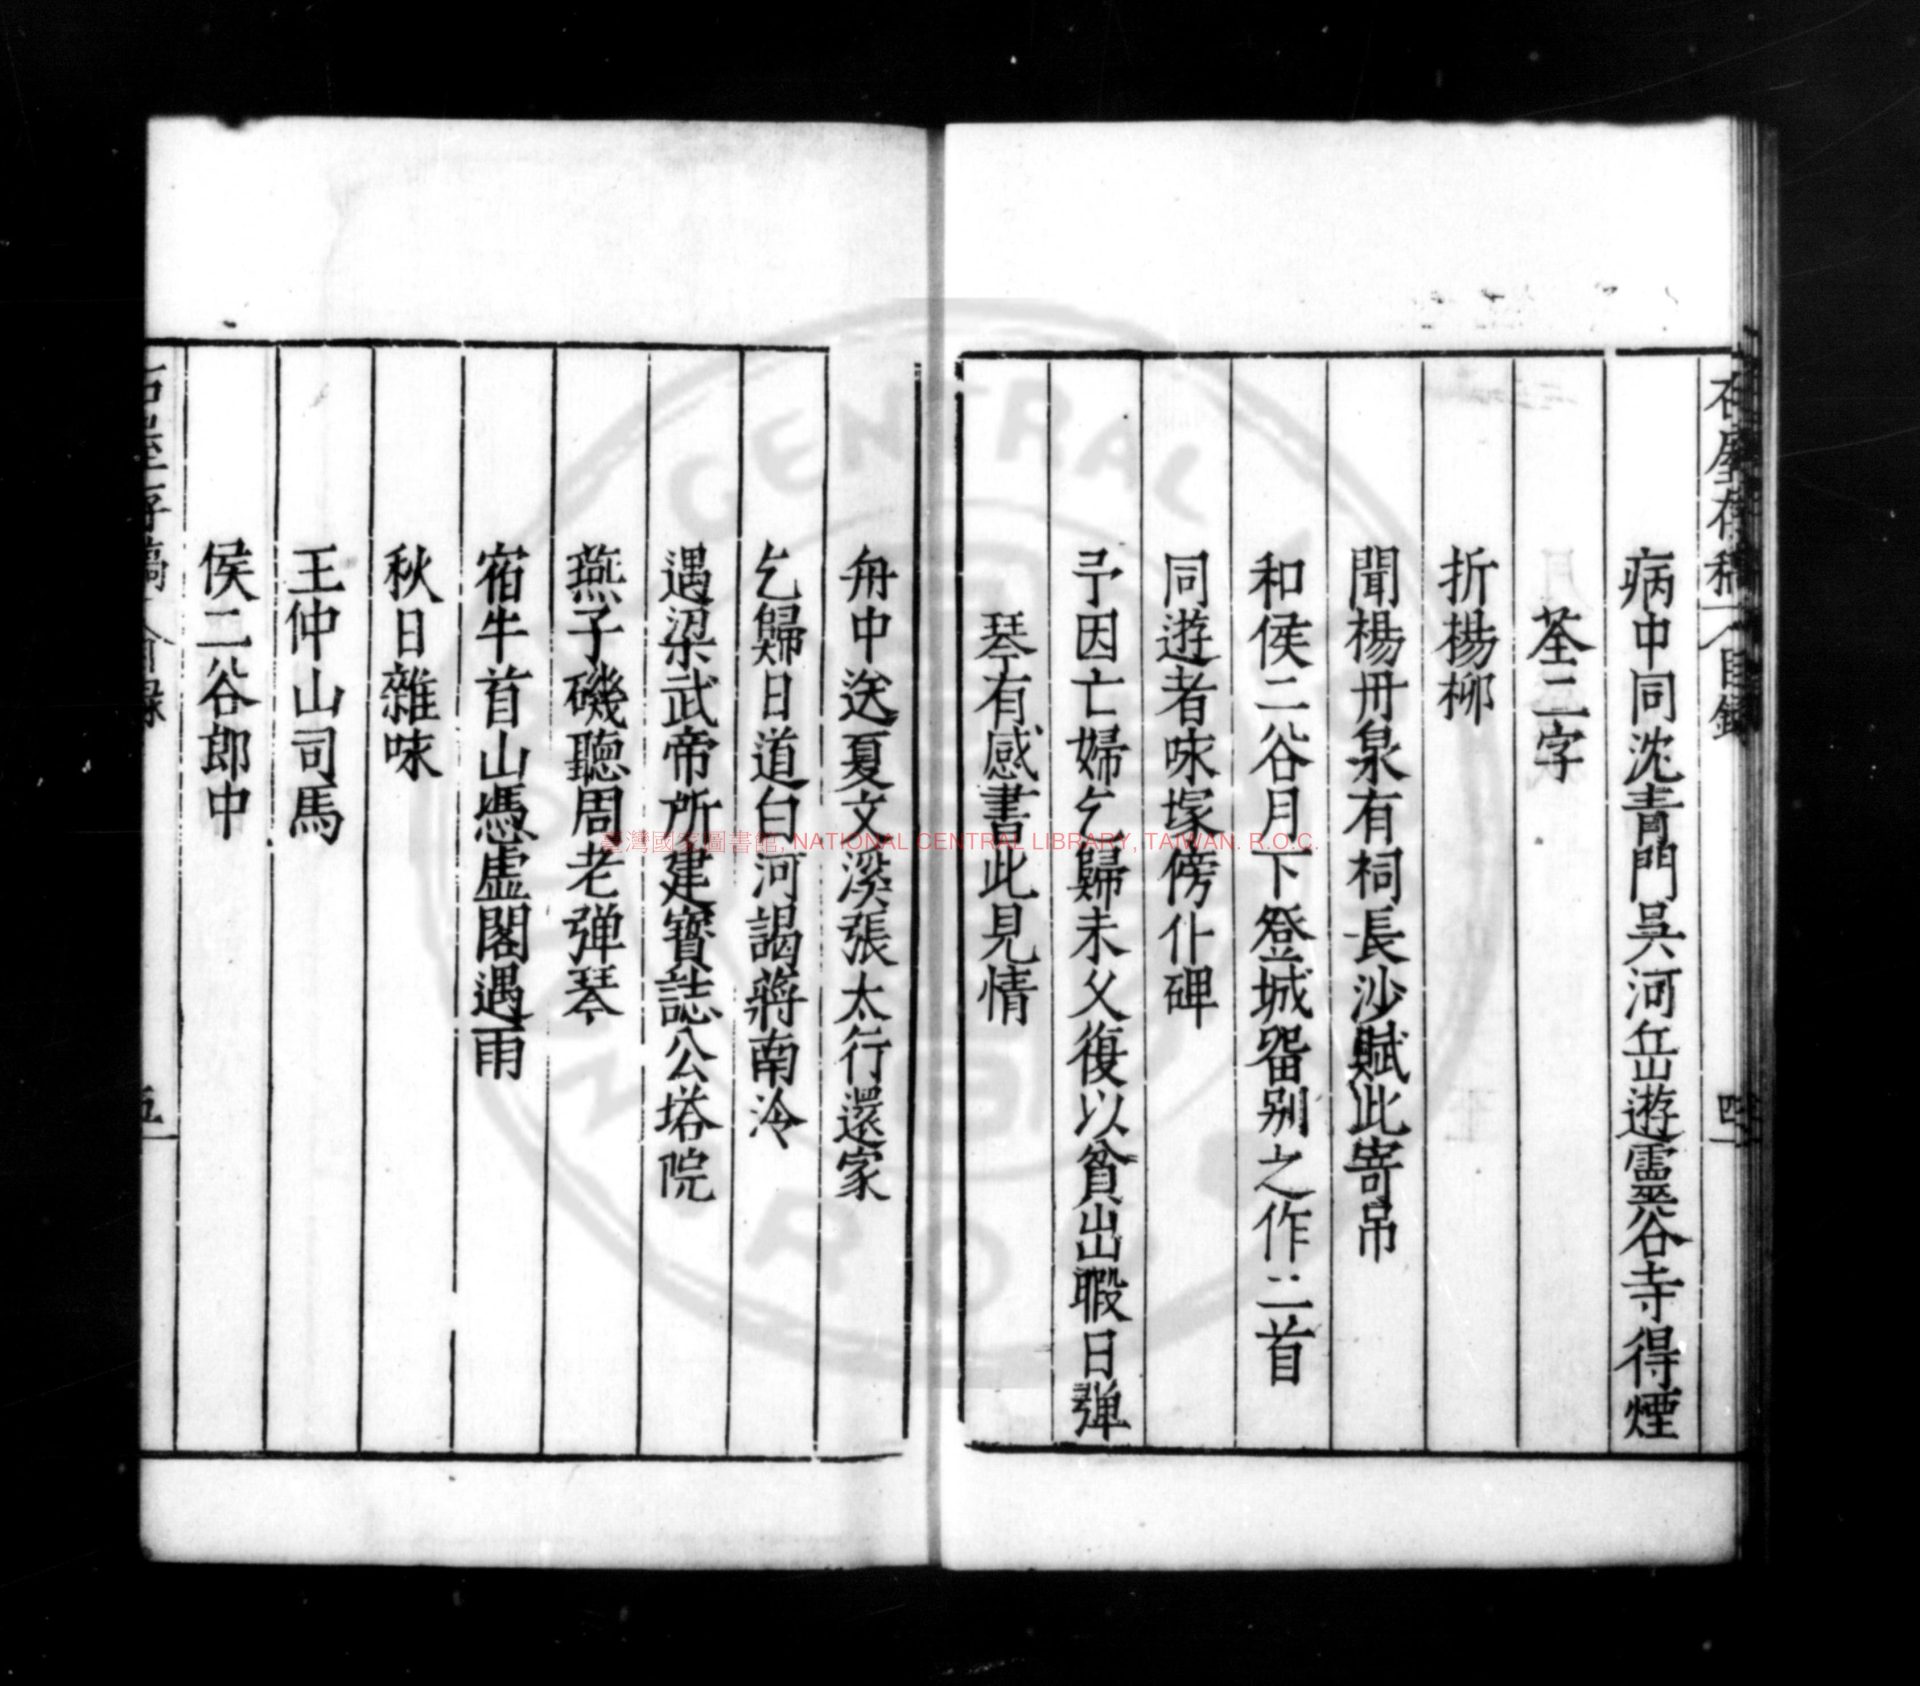 石屋存稿 目錄 四
病中同沈青門吳河岳遊靈谷寺得煙
荃二字
折楊柳
聞楊丹泉有祠長沙賦此寄吊
和侯二谷月下登城畱别之作二首
同遊者咏塚傍仆碑
予因亡婦乞歸未父復以貧出暇日弹
琴有感書此見情
舟中送夏文溪張太行還家
乞歸日道白河謁蔣南泠
遇梁武帝所建寳誌公塔院
燕子磯聽周老弹琴
宿牛首山憑虛閣遇雨
秋日雜咏
王仲山司馬
侯二谷郎中
五
臺灣國家圖書館, NATIONAL CENTRAL LIBRARY, TAIWAN. R.O.C.